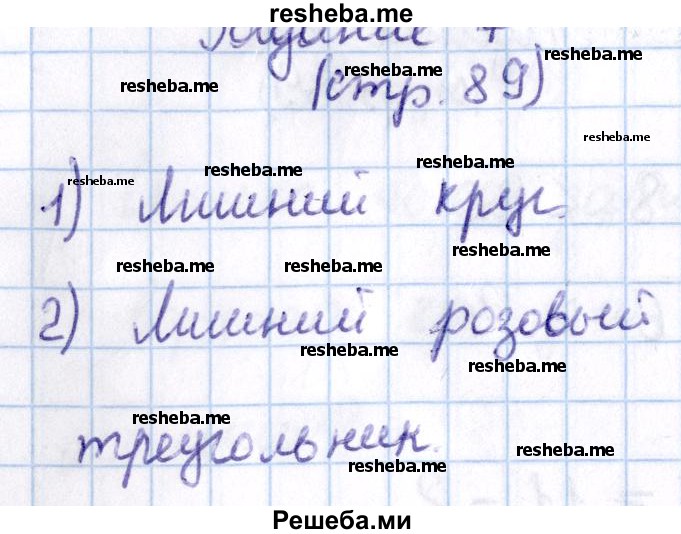 resheba.me
resheba.me
resheba.me resheba.me
(стр. 89)
resheba.me
resheba.me resheba.me resheba.me
1) Лишний круг.
resheba.me
resheba.me resheba.me
2) Лишний розовый
resheba.me
resheba.me
resheba.me
треугольник.
resheba.me
resheba.me
Решеба.ми